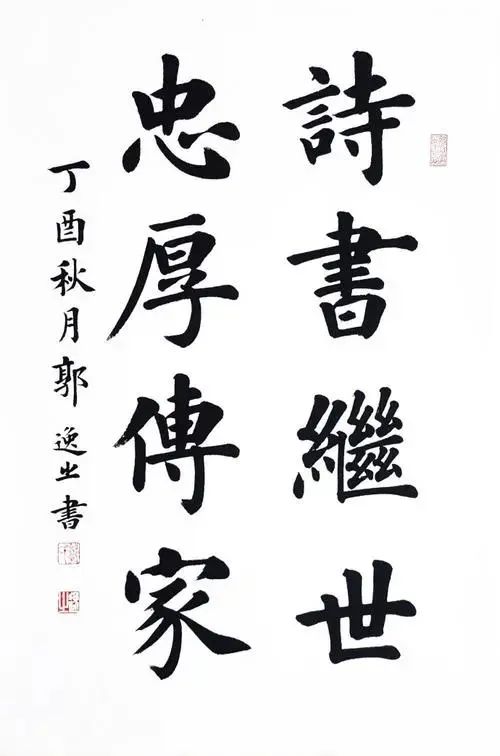 詩書繼世
忠厚傳家
丁酉秋月郭逸之書